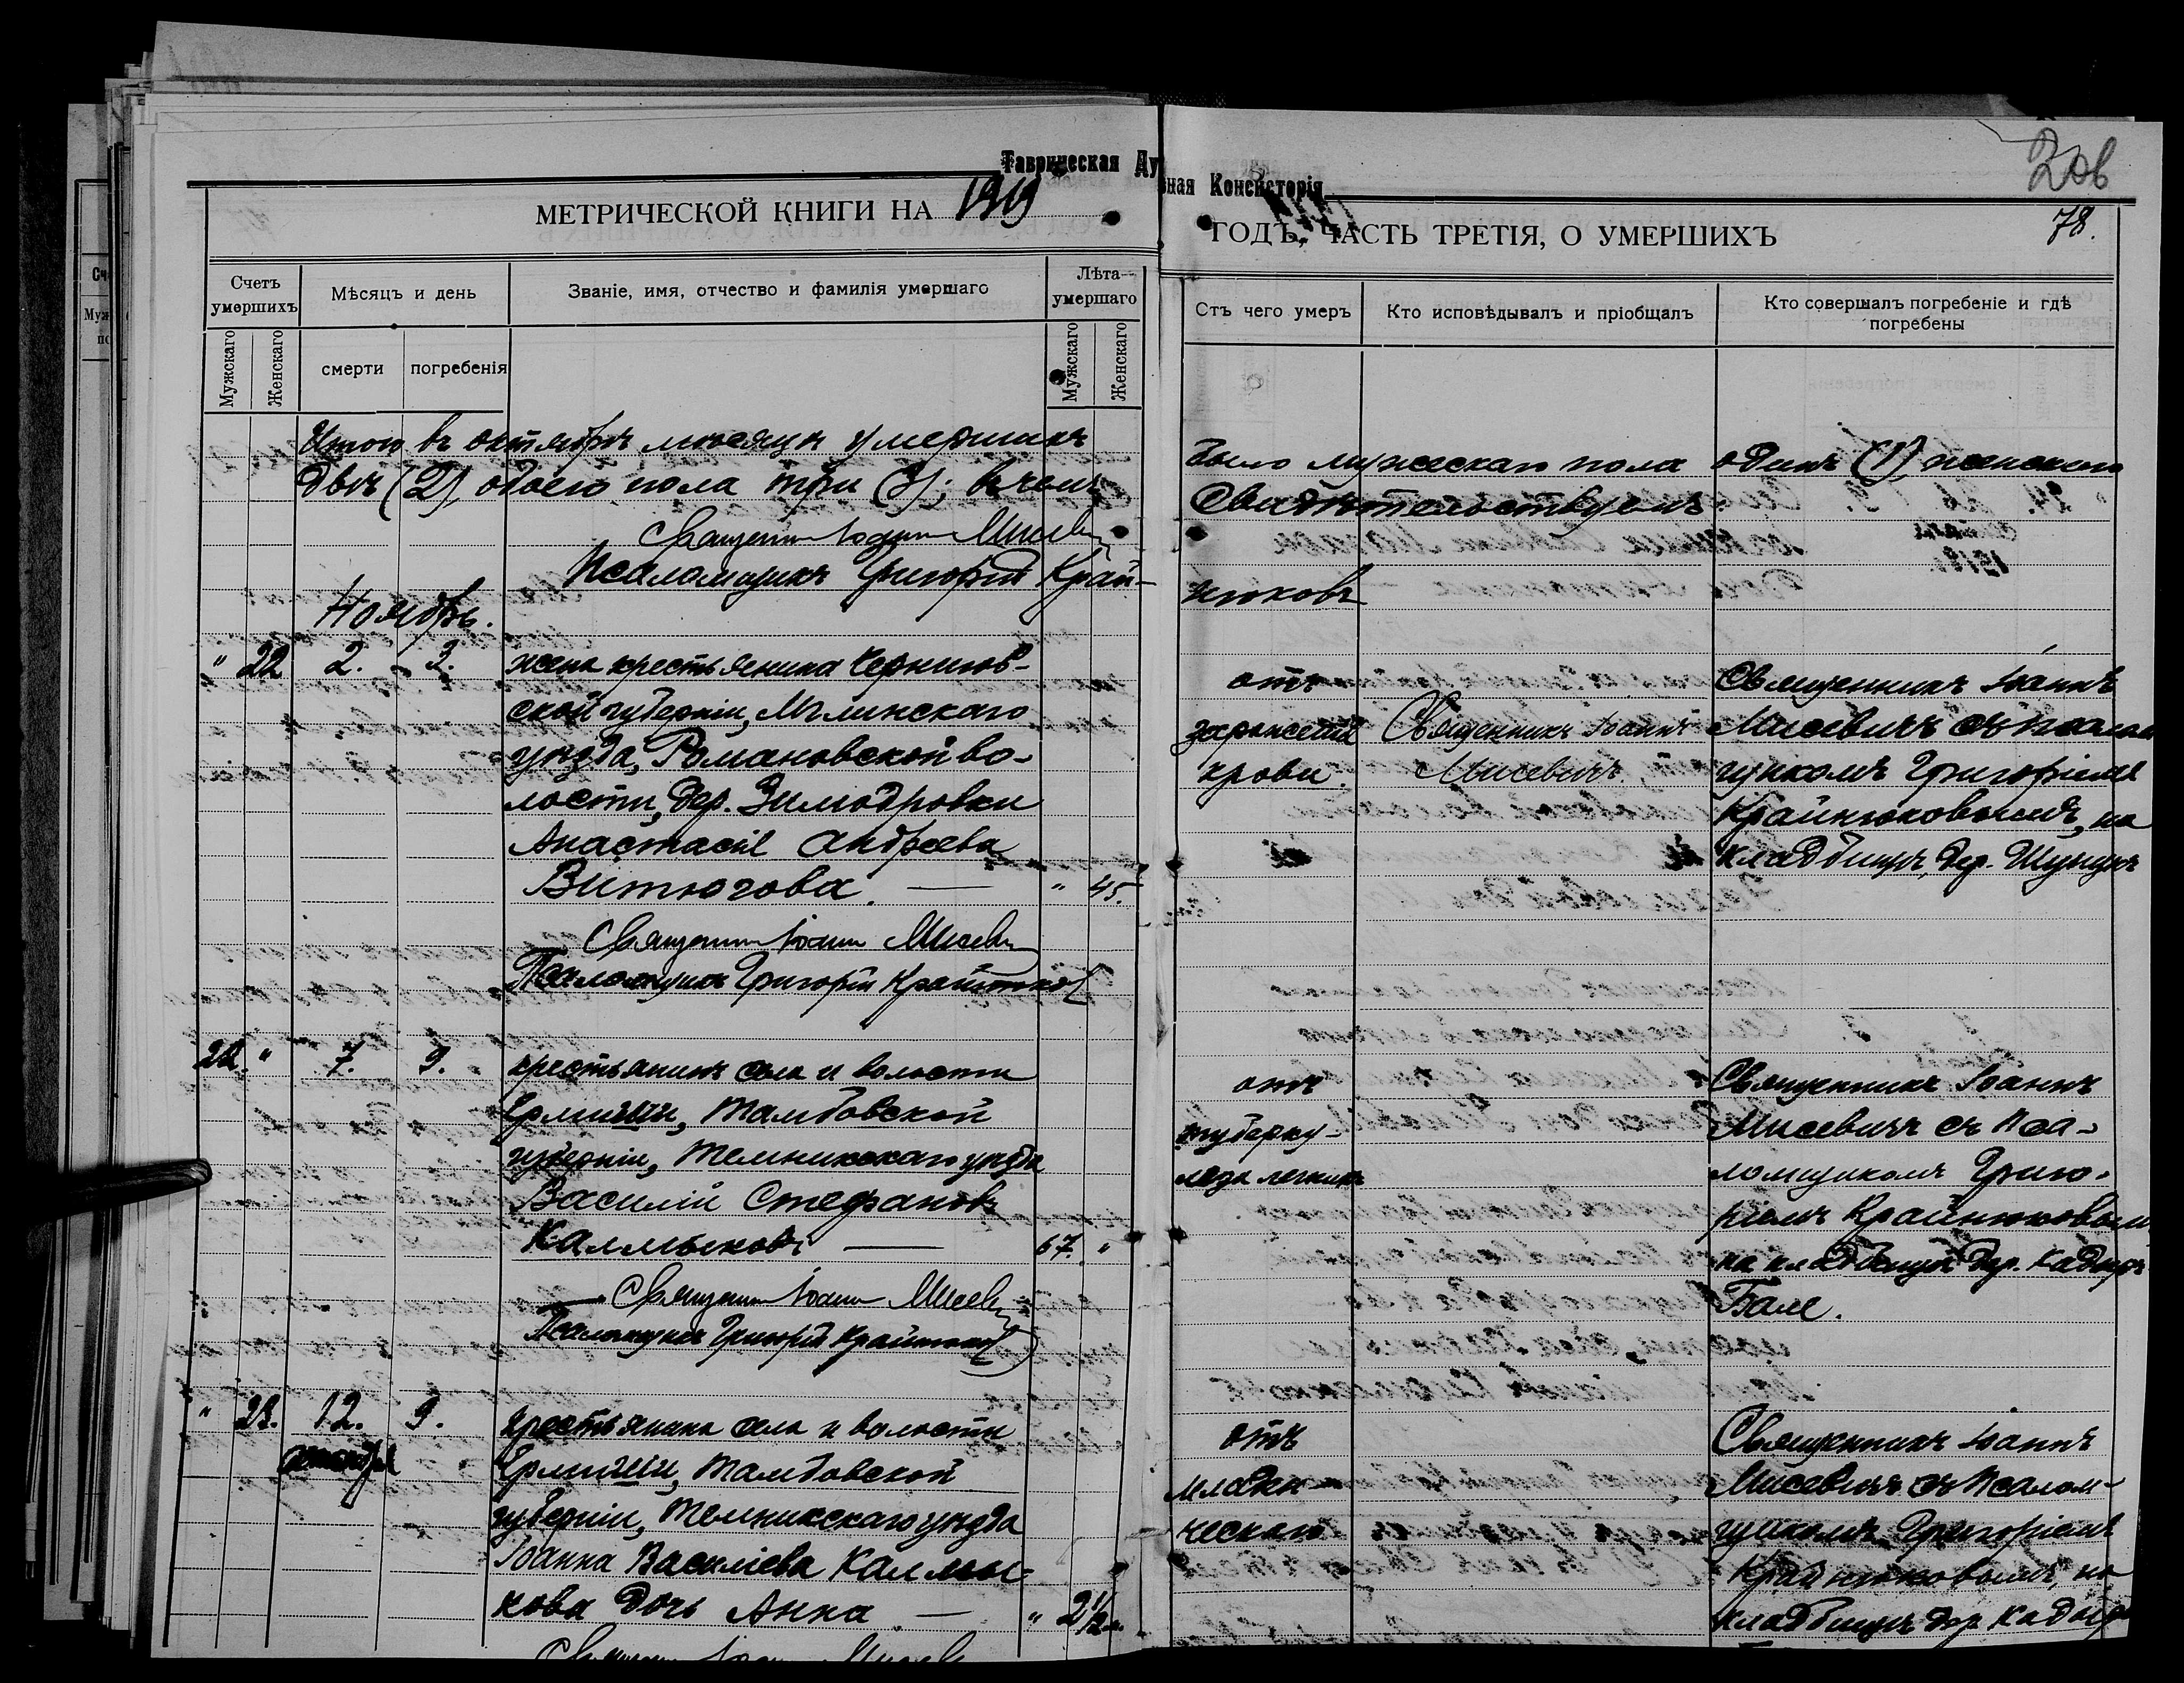 Таврическая Ду
ная Консисторія
206
МЕТРИЧЕСКОЙ КНИГИ НА 1919
ГОДЪ, ЧАСТЬ ТРЕТІЯ, О УМЕРШИХЪ
78.
Счетъ умершихъ
Мѣсяцъ и день
Званіе, имя, отчество и фамилія умершаго
Лѣта умершаго
Мужскаго
Женскаго
смерти
погребенія
Мужскаго
Женскаго
Отъ чего умеръ
Кто исповѣдывалъ и пріобщалъ
Кто совершалъ погребеніе и гдѣ
погребены
Итого въ октябрѣ мѣсяцѣ умершихъ
было мужескаго пола одинъ (1), женскаго
двѣ (2), обоего пола три (3); въ чемъ
Свидѣтельствуемъ:
Священникъ Іоаннъ Мисевичъ
Псаломщикъ Григорій Край-
нюковъ
Ноябрь.
" 22 2. 3.
жена крестьянина Чернигов-
ской губерніи, Мглинскаго
уѣзда, Романовской во-
лости, дер. Зимодровки
Анастасія Андреева
Витюгова. — " 45.
Священникъ Іоаннъ Мисевичъ
Псаломщикъ Григорій Крайнюковъ
отъ
зараженія
крови.
Священникъ Іоаннъ
Мисевичъ
Священникъ Іоаннъ
Мисевичъ съ псалом
щикомъ Григоріемъ
Крайнюковымъ, на
кладбищѣ дер. Шунукъ
22. " 7. 9.
крестьянинъ села и волости
Ермиши, Тамбовской
губерніи, Темниковскаго уѣзда
Василій Стефановъ
Калмыковъ — 67. "
Священникъ Іоаннъ Мисевичъ
Псаломщикъ Григорій Крайнюковъ
отъ
туберку-
леза легкихъ
Священникъ Іоаннъ
Мисевичъ съ Пса-
ломщикомъ Григо-
ріемъ Крайнюковымъ
на кладбищѣ дер. Кадыръ
Бале.
" 23. 12. 9.
октября
крестьянина села и волости
Ермиши, Тамбовской
губерніи, Темниковскаго уѣзда
Іоанна Василіева Калмы-
кова дочь Анна — " 2 1/2
отъ
младен-
ческаго
Священникъ Іоаннъ
Мисевичъ съ Псалом-
щикомъ Григоріемъ
Крайнюковымъ, на
кладбищѣ дер. Кадыръ
Священникъ Іоаннъ Мисевичъ